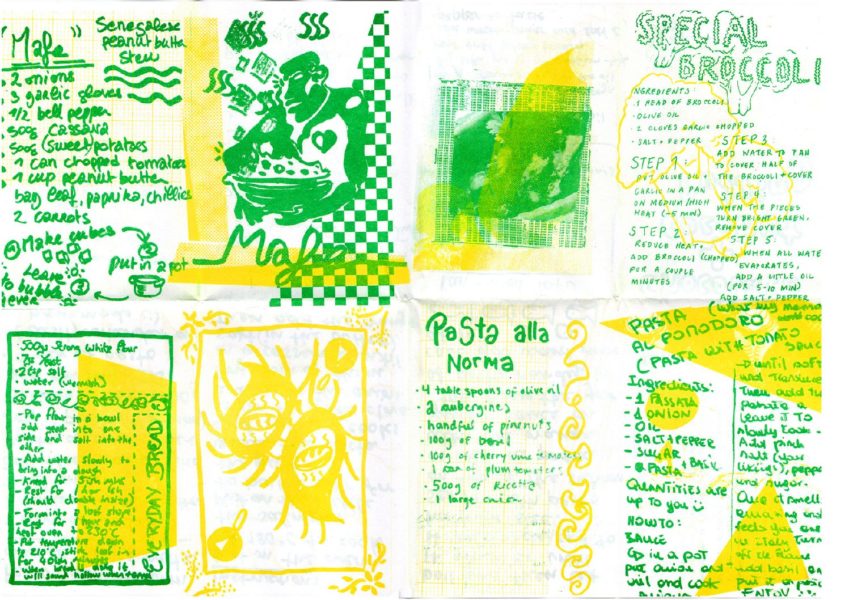 "Mafe"
Senegalese
peanut butta
Stew
2 onions
3 garlic gloves
1/2 bell pepper
500g cassava
500g (sweet)potatoes
1 can chopped tomatoes
1 cup peanut butter
bay leaf, paprika, chillies
2 carrots
① Make cubes
② Put in a pot
Leave
to bubble ③
4ever
Mafe
SPECIAL
BROCCOLI
INGREDIENTS:
1 HEAD OF BROCCOLI
· OLIVE OIL
· 2 CLOVES GARLIC CHOPPED
· SALT + PEPPER
STEP 1:
PUT OLIVE OIL +
GARLIC IN A PAN
ON MEDIUM/HIGH
HEAT (~5 MIN)
STEP 2:
REDUCE HEAT +
ADD BROCCOLI (CHOPPED)
FOR A COUPLE
MINUTES
STEP 3
ADD WATER TO PAN
TO COVER HALF OF
THE BROCCOLI + COVER
STEP 4:
WHEN THE PIECES
TURN BRIGHT GREEN,
REMOVE COVER
STEP 5:
WHEN ALL WATE
EVAPORATES,
ADD A LITTLE OIL
(FOR 5-10 MIN)
ADD SALT + PEPPER
· 500g Strong White flour
· 7g Yeast
· 2 tsp salt
· water (warmish)
- Pop flour in a bowl
add yeast into one
side and salt into the
other
- Add water slowly to
bring into a dough
- Knead for 5ish mins
- Rest for 1 hour ish
(should double in size)
- Form into a loaf shape
- Rest for 1 hour and
heat oven to 230°C
- Put temperature down
to 210°c, stick loaf in
for 40ish minutes
- When bread is done it
will sound hollow when tapped
EVERYDAY BREAD
Pasta alla
Norma
· 4 table spoons of olive oil
· 2 aubergines
· handful of pinenuts
· 100g of basil
· 100g of cherry vine tomatoes
· 1 can of plum tomatoes
· 500g of ricotta
· 1 large onion
PASTA (what my mamma
AL POMODORO
(PASTA WITH TOMATO
SAUCE)
Ingredients:
- 1 PASSATA
- 1 ONION
- OIL
- SALT + PEPPER
- SUGAR
- PASTA + BASIL
QUANTITIES are
up to you
HOW TO:
SAUCE
Oil in a pot
put onion and
oil and cook
until soft
Then add the
passata &
leave it to
slowly cook.
Add pinch
salt (your
liking), pepper
and sugar.
Once it smells
and
feels you are
turn
off the flame
add basil
ENJOY!!